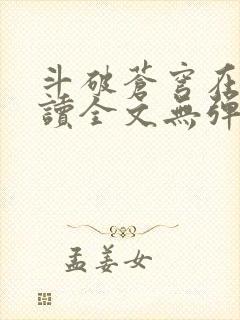 斗破蒼穹在
讀全文無彈
孟姜女